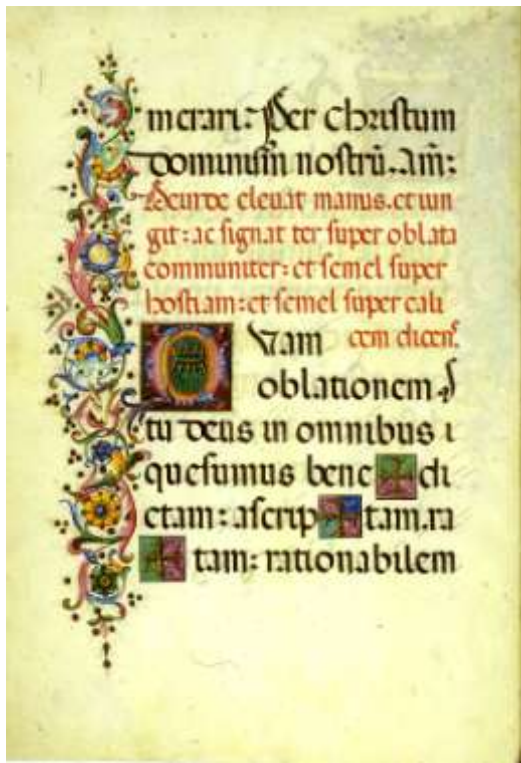 merari: Per christum
dominum nostrū. Am̄:
Deinde elevat manus. et iun
git: ac signat ter super oblata
communiter: et semel super
hostiam: et semel super cali
Quam cem dicens.
oblationem
tu deus in omnibus
quesumus bene✠di
ctam: ascrip✠tam. ra
✠tam: rationabilem